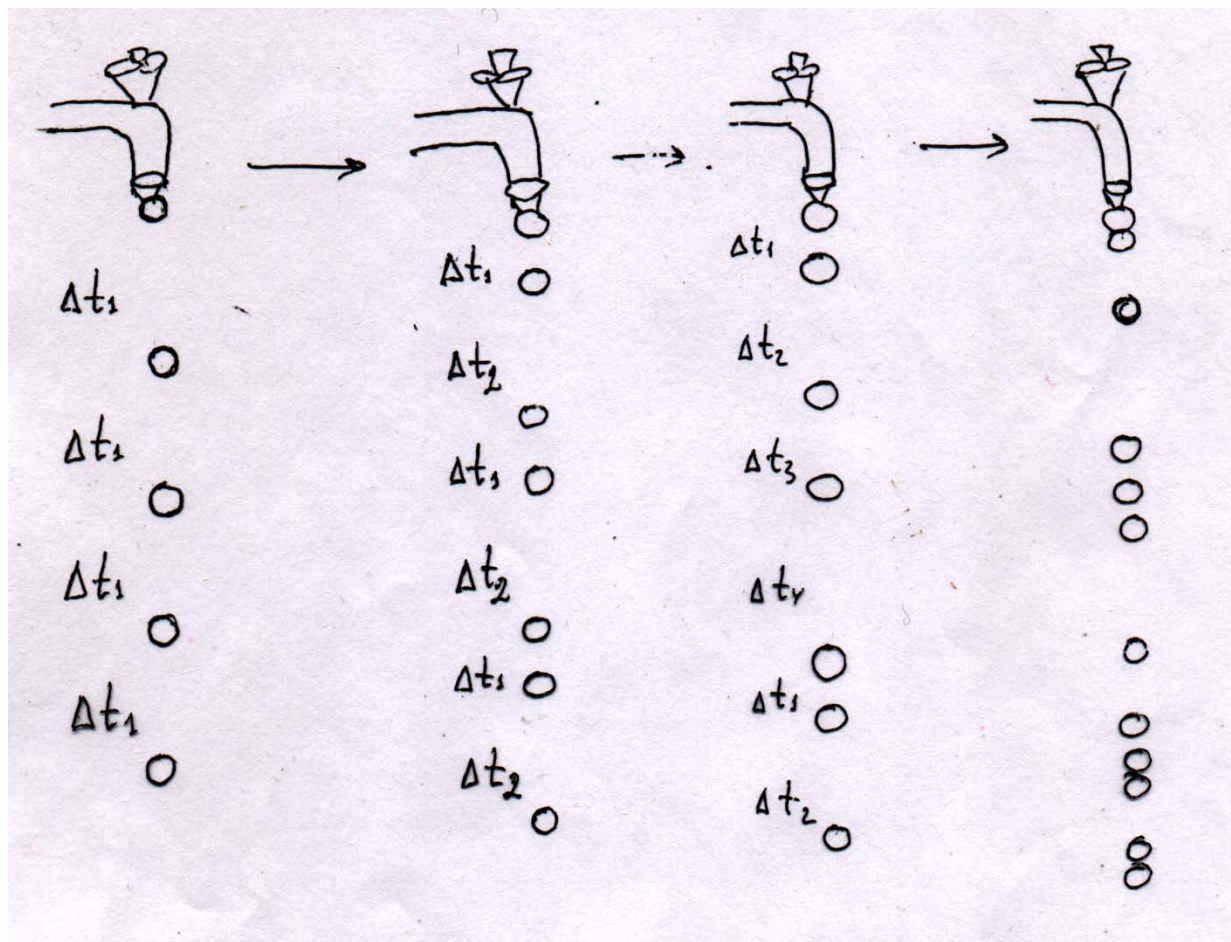 Δt₁
Δt₁
Δt₁
Δt₁
Δt₁
Δt₂
Δt₁
Δt₂
Δt₁
Δt₂
Δt₁
Δt₂
Δt₃
Δt₄
Δt₁
Δt₂